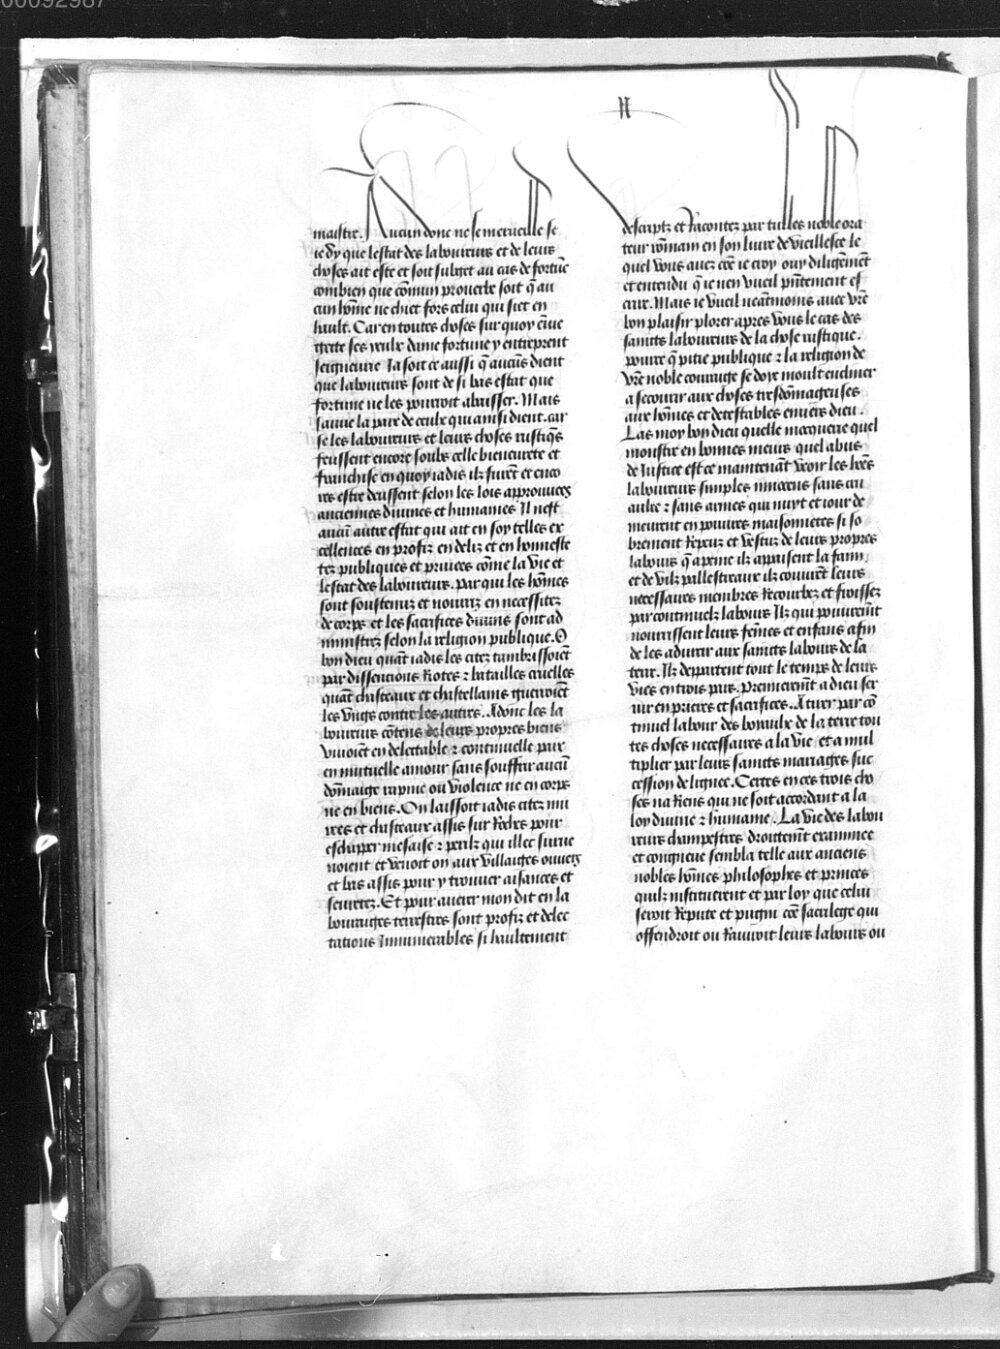 00092987
N
maistre. Aucun donc ne se merueille se
ie dy que lestat des laboureurs et de leurs
choses ait este et soit subget au cas de fortūe
combien que cōmun prouerbe soit q̄ au
cun hōme ne chiet fors celui qui siet en
hault. Car en toutes choses sur quoy
gette ses yeulx dame fortune y entreprent
seigneurie. Ja soit ce aussi q̄ aucūs dient
que laboureurs sont de si bas estat que
fortune ne les pourroit abaisser. Mais
sauue la paix de ceulx qui ainsi dient. car
se les laboureurs et leurs choses rustiq̄s
feussent encore soubz celle bieneurete et
franchise en quoy iadis ilz furēt et enco
res estre deussent selon les lois approuuees
anciennes diuines et humaines Il nest
aucū autre estat qui ait en soy telles ex
cellences en profiz en deliz et en honneste
tez publiques et priuees cōme la vie et
lestat des laboureurs. par qui les hōmes
sont soustenuz et nourriz en necessitez
de corps et les sacrifices diuins sont ad
ministrez selon la religion publique. O
bon dieu quāt iadis les citez
par dissencions Rotes ⁊ batailles cruelles
quāt chasteaux et chastellains guerroiēt
les vngs contre les autres. Adonc les la
boureurs cōtens de leurs propres biens
viuoiēt en delectable ⁊ continuelle paix
en mutuelle amour sans souffrir aucū
dōmaige rapine ou violence ne en corps
ne en biens. On laissoit iadis citez mu
rees et chasteaux assis sur Roches pour
eschaper mesaise ⁊ perilz qui illec surue
noient et venoit on aux villaiges ouuers
et bas assis pour y trouuer aisances et
seuretez. Et pour auerer mon dit en la
bouraiges terrestres sont profiz et delec
tations Innumerables si haultement
descriptz et Racontez par tulles noble ora
teur rōmain en son liure de vieillesce le
quel vous auez cōe ie croy ouy diligēment
et entendu q̄ ie nen vueil pn̄tement es
crire. Mais ie vueil neātmoins auec vr̄e
bon plaisir plorer apres vous le cas des
saincts laboureurs de la chose rustique.
pource q̄ pitie publique ⁊ la religion de
vr̄e noble couraige se doye moult encliner
a secourir aux choses tresdōmageuses
aux hōmes et detestables enuers dieu.
Las moy bon dieu quelle mocquerie quel
monstre en bonnes meurs quel abus
de Justice est ce maintenant veoir les
laboureurs simples innocens sans cru
aulte ⁊ sans armes qui nuyt et iour de
meurent en poures maisonnetes si so
brement Repeuz et vestuz de leurs propres
labours q̄ a peine ilz appaisent la faim
et de vilz pallestreaux ilz couurēt leurs
necessaires membres Recourbez et froissez
par continuelz labours Ilz qui pourement
nourrissent leurs fēmes et enfans afin
de les adiurer aux saincts labours de la
terre. Ilz departent tout le temps de leurs
vies en trois pars. premieremēt a dieu ser
uir en prieres et sacrifices. A tirer par cō
tinuel labour des boyaulx de la terre tou
tes choses necessaires a la vie et a mul
tiplier par leurs saincts mariages suc
cession de lignee. Certes en ces trois cho
ses na Riens qui ne soit accordant a la
loy diuine ⁊ humaine. La vie des labou
reurs champestres droictemēt examinee
et congneue sembla telle aux anciens
nobles hōmes philosophes et princes
quilz instituerent et par loy que celui
seroit Repute et pugni cōe sacrilege qui
offendroit ou Rauiroit leurs labours ou